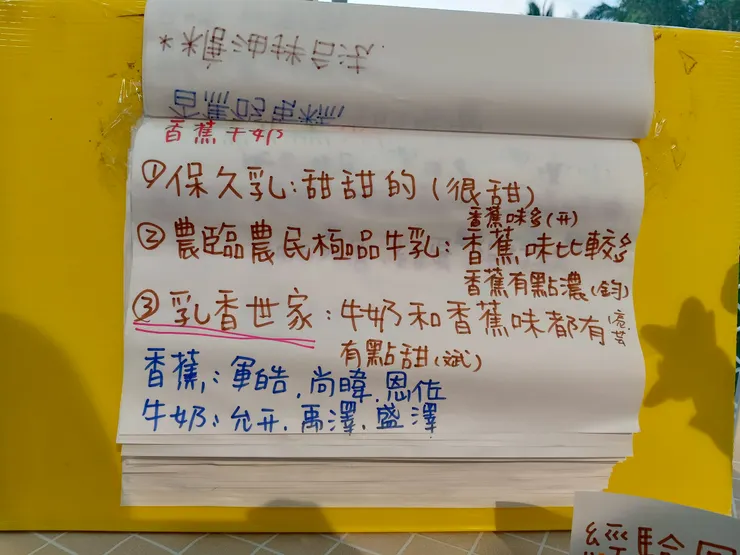 *糖油拌合法
香蕉奶昔蛋糕
香蕉牛奶
①保久乳:甜甜的(很甜)
香蕉味多(开)
②農臨農民極品牛乳:香蕉味比較多
香蕉有點濃(鈞)
③乳香世家:牛奶和香蕉味都有
有點甜(斌)
香蕉:軍皓.尚暐.恩佐
牛奶:允开.禹澤.盛澤
經驗